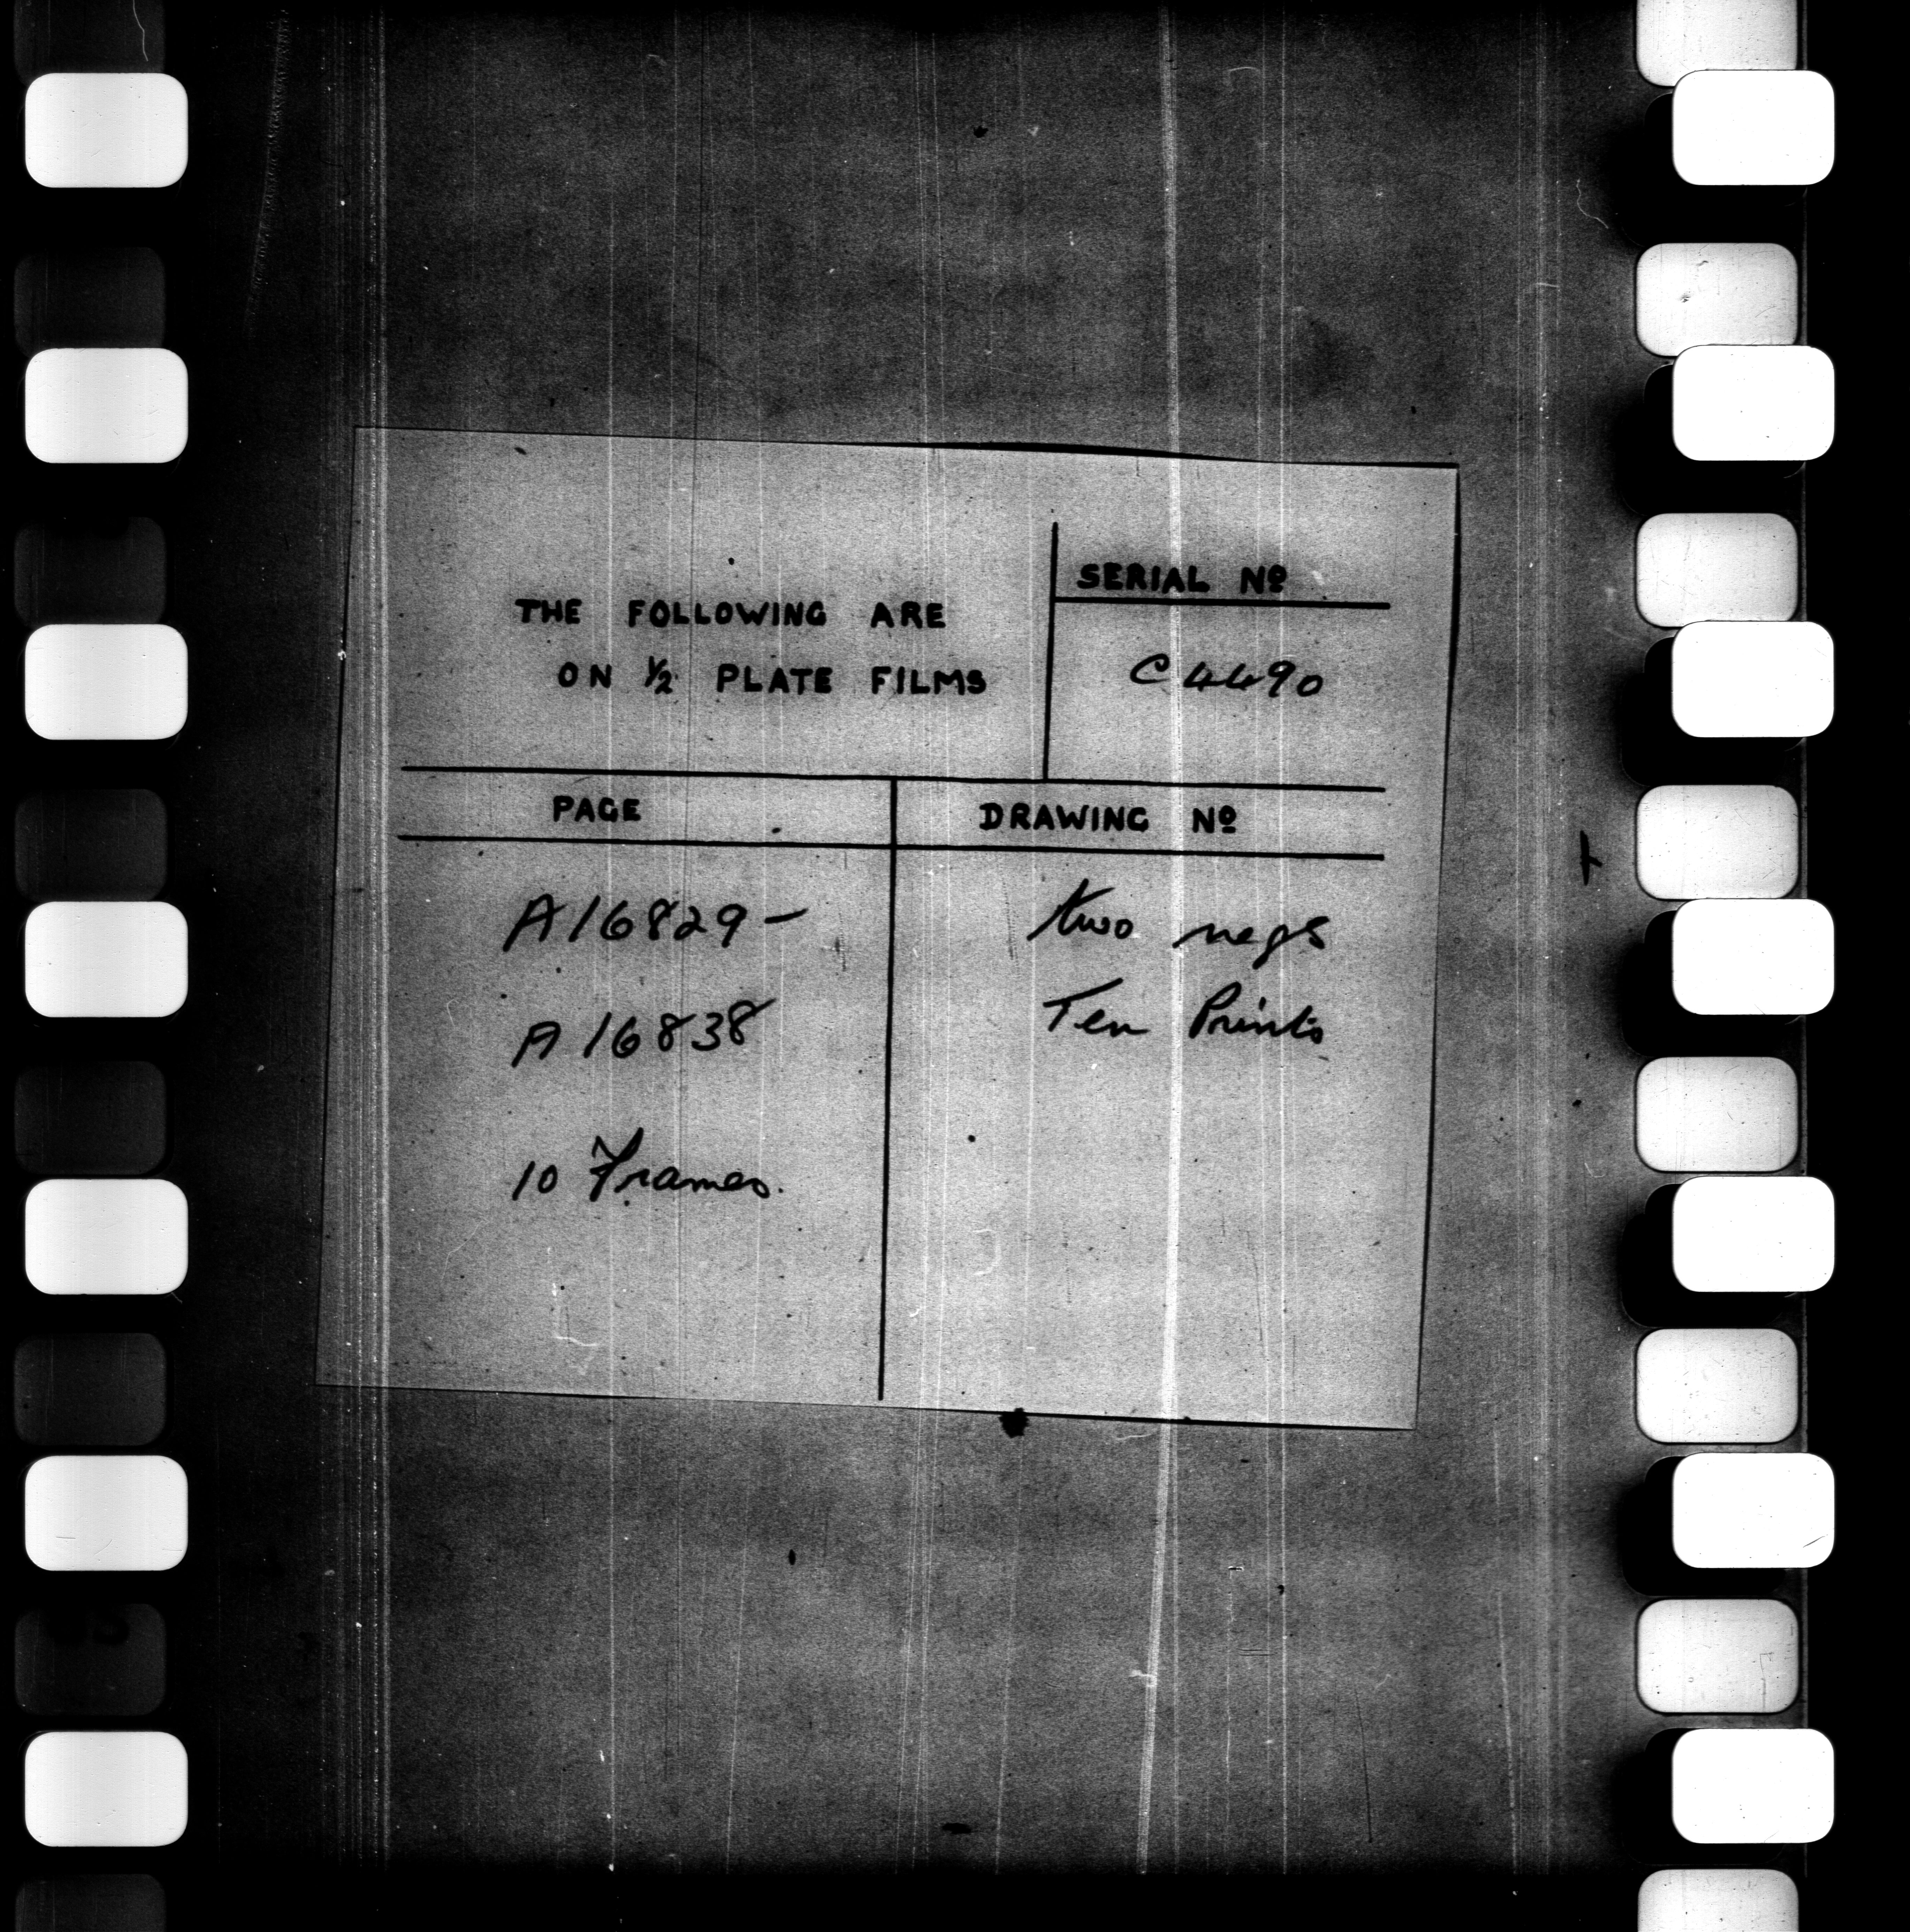 THE FOLLOWING ARE
ON ½ PLATE FILMS
SERIAL Nº
C4490
PAGE
DRAWING Nº
A16829 –
two negs
A16838
Ten Prints
10 Frames.